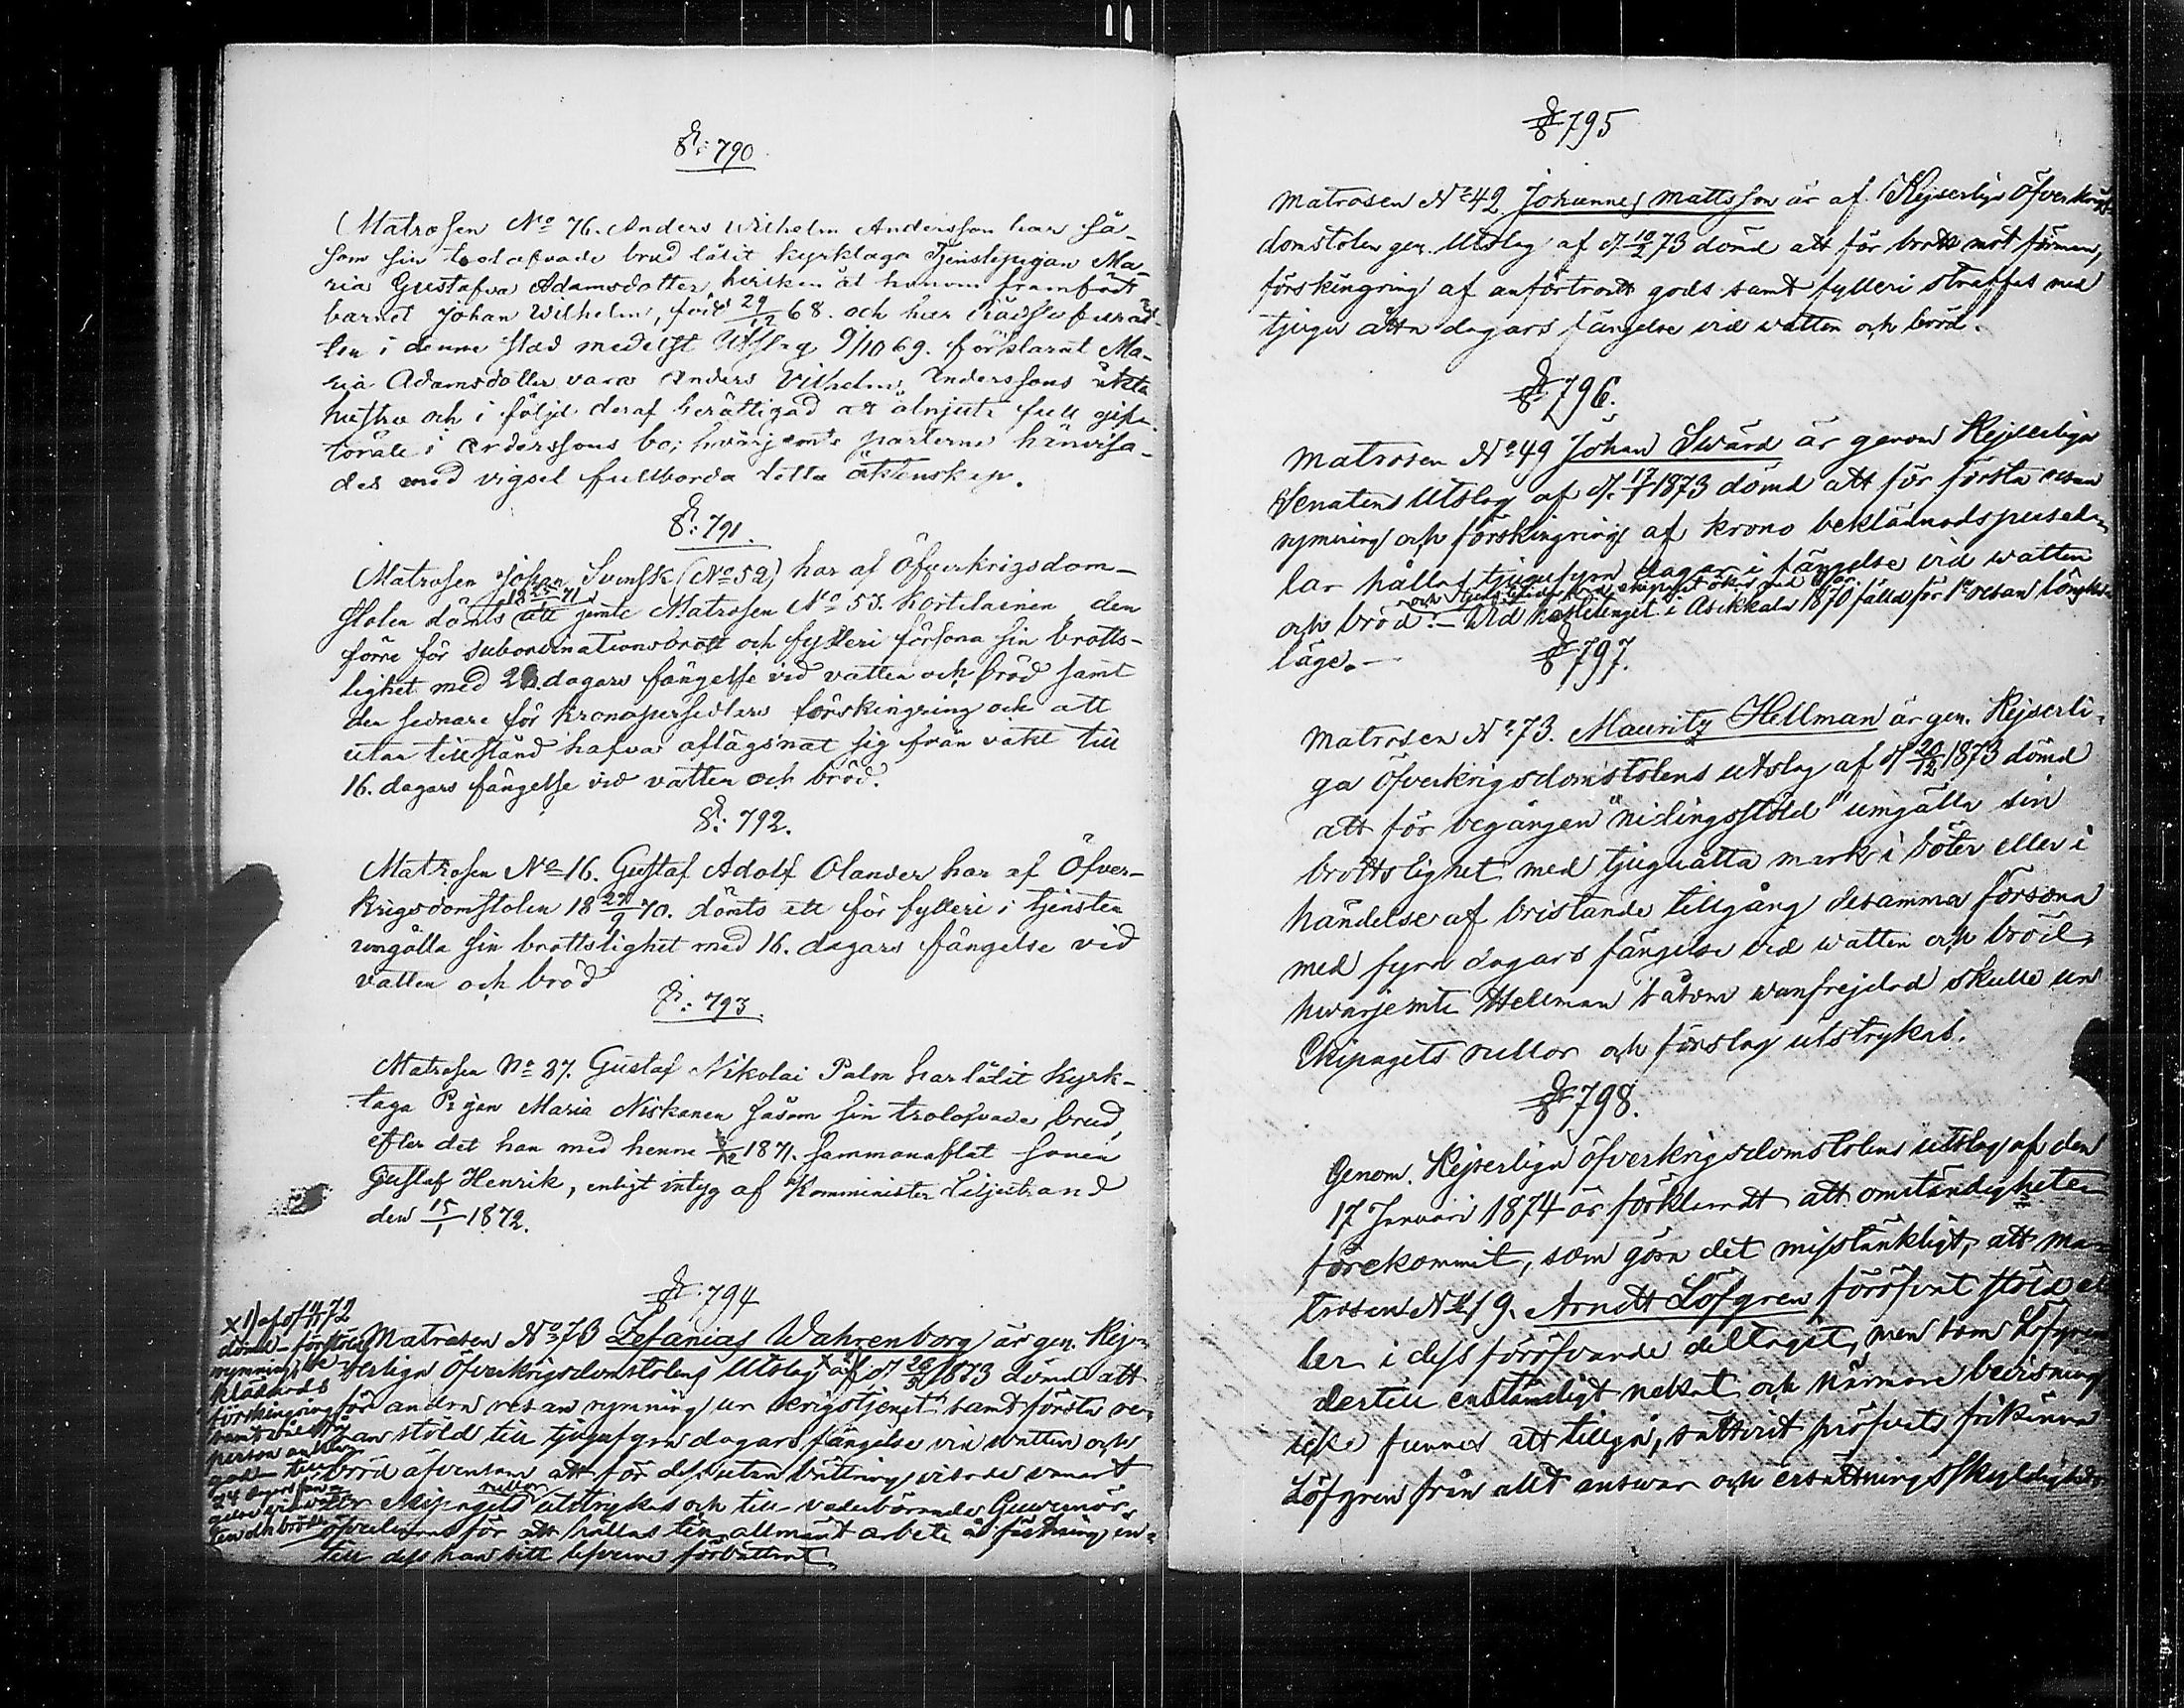 §: 790.
Matrosen No 76. Anders Wilhelm Andersson har så-
som sin trolofvade brud låtit kyrktaga Tjenstepigan Ma-
ria Gustafva Adamsdotter, hvilken åt honom framfödt
barnet Johan Wilhelm, född 29/12 68. och har Rådstufvurät-
ten i denne stad medelst Utslag 9/10 69. förklarat Ma-
ria Adamsdotter vara Anders Vilhelm Anderssons äkta
hustru och i följd deraf berättigad att åtnjuta full gifto-
rätt i Anderssons bo; hvarjemte parterne hänvisa-
des med vigsel fullborda detta äktenskap.
§: 791.
Matrosen Johan Svensk (No 52) har af Öfverkrigsdom-
stolen dömts att jemte Matrosen No 53. Kortelainen den
förre för subordinationsbrott och fylleri försona sin brotts-
lighet med 28. dagars fängelse vid vatten och bröd samt
den sednare för kronopersedlars förskingring och att
utan tillstånd hafva aflägsnat sig från vakt till
16. dagars fängelse vid vatten och bröd.
§: 792.
Matrosen No 16. Gustaf Adolf Olander har af Öfver-
krigsdomstolen 18 29/9 70. dömts att för fylleri i tjensten
umgälla sin brottslighet med 16. dagars fängelse vid
vatten och bröd
§: 793.
Matrosen No 37. Gustaf Nikolai Palm har låtit kyrk-
taga Pigan Maria Niskanen såsom sin trolofvade brud,
efter det han med henne /12 1871. sammanaflat sonen
Gustaf Henrik, enligt intyg af Komminister Liljestrand
den 15/1 1872.
§ 794
x 1) af d. /11 72
dömd för
rymning, be-
klädnads
förskingring
samt
person
till
24 dagars fän-
gelse vid vat-
ten och bröd
Matrosen No 73 Zefanias Wahrenborg är gen. Kej-
serliga Öfverkrigsdomstolens Utslag x af d. 26/5 1873 dömd att
för andra resan rymning ur krigstjenst samt första re-
san stöld till tjugufyra dagars fängelse vid watten och
bröd äfvensom att för dessutan bättring visade vanart
ur Ekipagets rullor utstrykas och till vederbörande Guvernör
öfverlemnas för att hållas till allmänt arbete å fästning in-
till dess han sitt lefverne förbättrat.
§ 795
Matrosen No 42 Johannes Mattsson är af Kejserliga Öfverkrigs-
domstolen gen. Utslag af d. 10/2 73 dömd att för brott mot förman,
förskingring af anförtrodt gods samt fylleri straffas med
tjugu åtta dagars fängelse vid watten och bröd.
§ 796.
Matrosen No 49 Johan Swärd är genom Kejserliga
Senatens Utslag af d. 17/7 1873 dömd att för första resan
rymning och förskingring af krono beklädnadspersed-
lar hållas tjugufyra dagar i fängelse vid watten
och bröd. – Vid häradstinget i Asikkala 1870 fälld för 1a resan lönska-
läge. –
§ 797.
Matrosen No 73. Mauritz Hellman är gen. Kejserli-
ga Öfverkrigsdomstolens utslag af d. 20/12 1873 dömd
att för begången "nidingsstöld" umgälla sin
brottslighet med tjuguåtta mark i böter eller i
händelse af bristande tillgång desamma försona
med fyra dagars fängelse vid watten och bröd,
hwarjemte Hellman såsom wanfrejdad skulle ur
Ekipagets rullor och förslag utstrykas.
§ 798.
Genom Kejserliga Öfverkrigsdomstolens utslag af den
17 Januari 1874 är förklaradt att omständigheter
förekommit, som göra det misstänkligt, att Ma-
trosen No 19. Arndt Löfgren föröfvat stöld el-
ler i dess föröfvande deltagit, men som Löfgren
dertill enständigt nekat och närmare bevisning
icke funnes att tillgå, rättvist pröfvats frikänna
Löfgren från allt answar och ersättningsskyldighet.